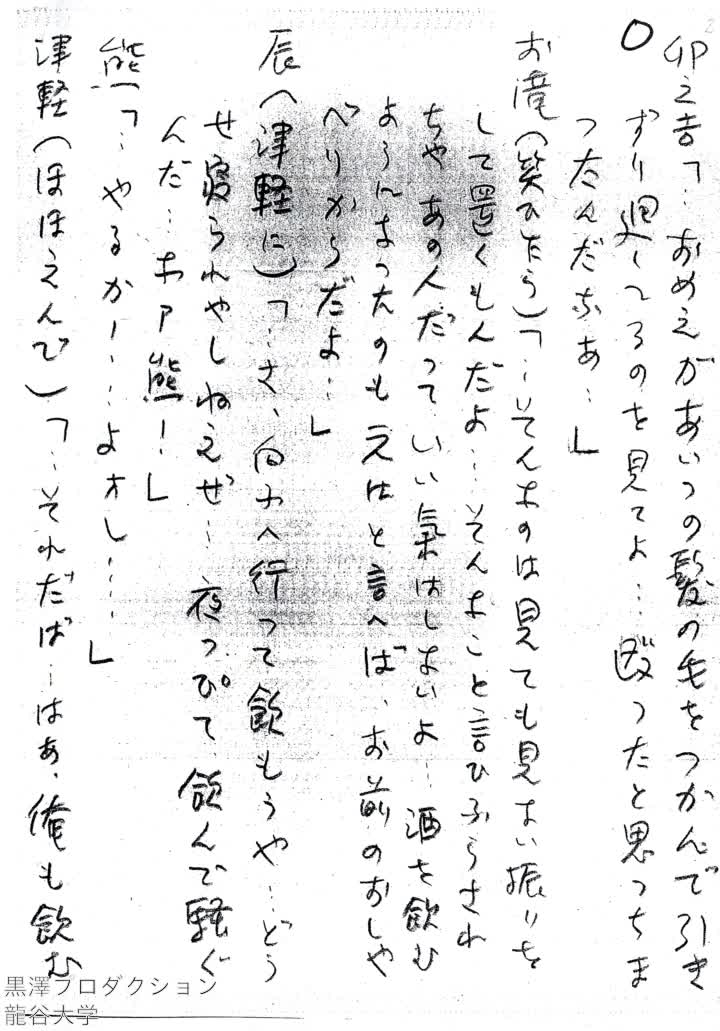 卯之吉「‥おめえがあいつの髪の毛をつかんで引き
ずり廻してるのを見てよ‥‥殴つたと思つちま
つたんだなあ‥」
お滝（笑ひ乍ら）「‥そんなのは見ても見ない振りを
して置くもんだよ‥‥そんなこと言ひふらされ
ちや あの人だつて いい氣はしないよ‥酒を飲む
ようになつたのも元はと言へば、お前のおしや
べりからだよ‥」
辰（津軽に）「‥さ、向ふへ行つて飲もうや‥どう
せ寝られやしねえぜ‥夜つぴて飲んで騒ぐ
んだ‥なア熊！」
熊「‥やるかー‥‥よオし‥‥」
津軽（ほほえんで）「‥それだば‥はあ、俺も飲む
黒澤プロダクション
龍谷大学